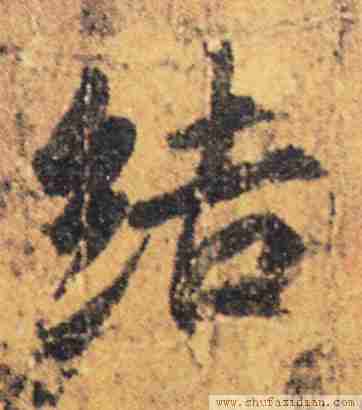 結
www.shufazidian.com